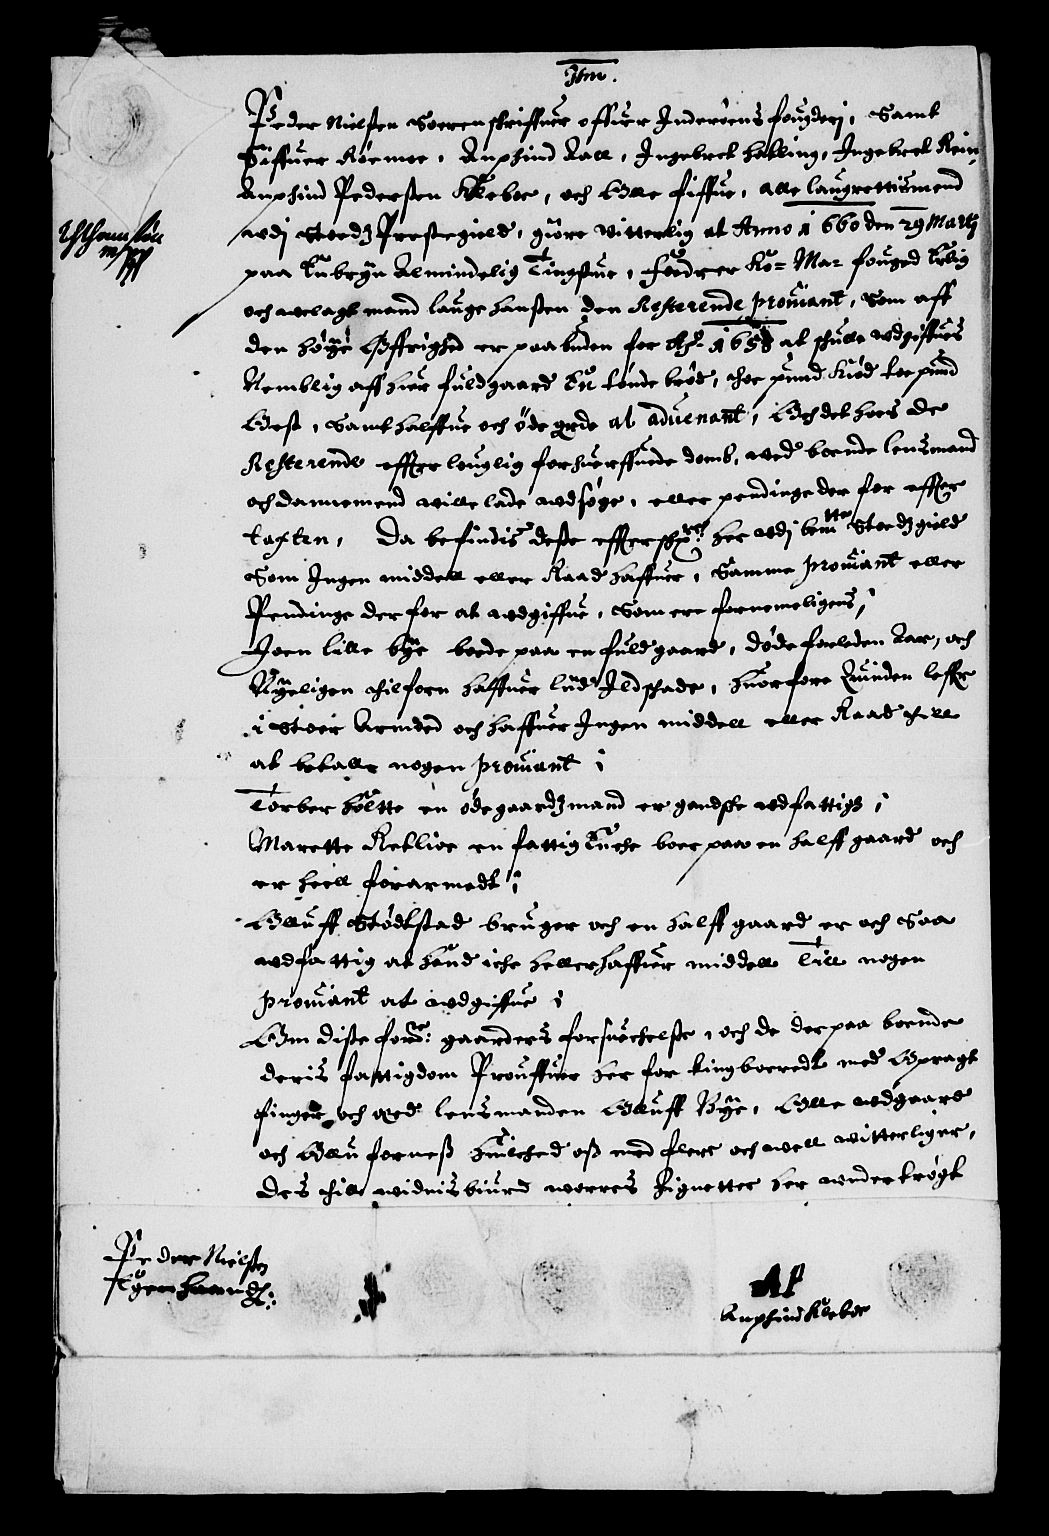 Jtm.
Peder Nielsen Sorenskriffuer offuer Inderöens fougderj, Samt
Siffuer Röemoe, Anphind Aall, Ingebret Halling, Ingebret Rein,
Anphind Pedersen Kleboe, och Olle fiffue, alle laugrettismend
udj Stoedz Prestegield, giöre witterlig at Anno 1660 den 29 Martij
paa Tubryn Almindelig Tingstue, fordrer Ko: Ma: fouged Erlig
och welagt mand Lauge Hansen den Resterende proviant, som aff
den höye Öffrighed er paabuden for Ao. 1658 at skulle udgiffues
Nemblig aff huer fuldgaard Tu tönde bröd, thoe pund kiöd toe pund
Oest, samt halffue och öde grde at aduenant, Och det hoes de
Resterende effter louglig forhuerffuede domb, wed boende lensmand
och dannemend wille lade udsöge, eller pendinge der for effter
taxten, Da befindis desse effterschr: her udj bemtte Stoedz gield
Som Ingen middell eller Raad haffuer, Samme proviant eller
Pendinge der for at udgiffue, som ere fornemeligens,
Joen Lille Bye boede paa en fuld gaard, döde forleden Aar, och
Nyeligen thilforn haffuer lid Ildskade, huorfore Quinden leffer
i Stoer Armod och haffuer Ingen middell eller Raad thill
at betalle nogen proviant
Torber Holtte en ödegaardzmand er gandske udfattig
Marette Retlioe en fattig Encke boer paa en halff gaard och
er heell forarmedt
Olluff Stödtstad bruger och en halff gaard er och saa
udfattig at hand iche heller haffuer middell Till nogen
proviant at udgiffue
Om disse forne: gaarders forsuechelse, och de derpaa boende
deris fattigdom Prouffuer her for tingboeredt med Opragt
finger och æed lensmanden Olluff Bye, Olle udgaard
och Ollu forness huilched oss med flere och well witterliger,
Des thill widnisbiurd worres Zignetter her under trögt
Peder Nielsen
Egen Haand
AP
Anphind Kleboe